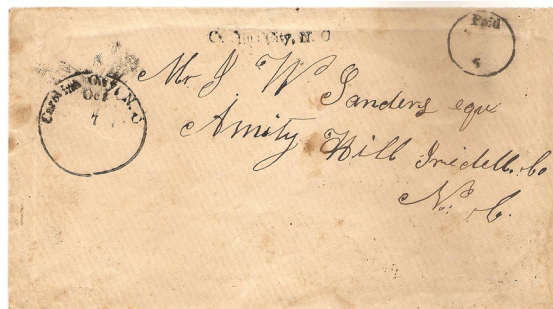 Carolina City, N. C
Paid
5
Carolina City, N. C
Oct
4
Mr J W Sanders esqr
Amity Hill Iredell. Co
N. C.